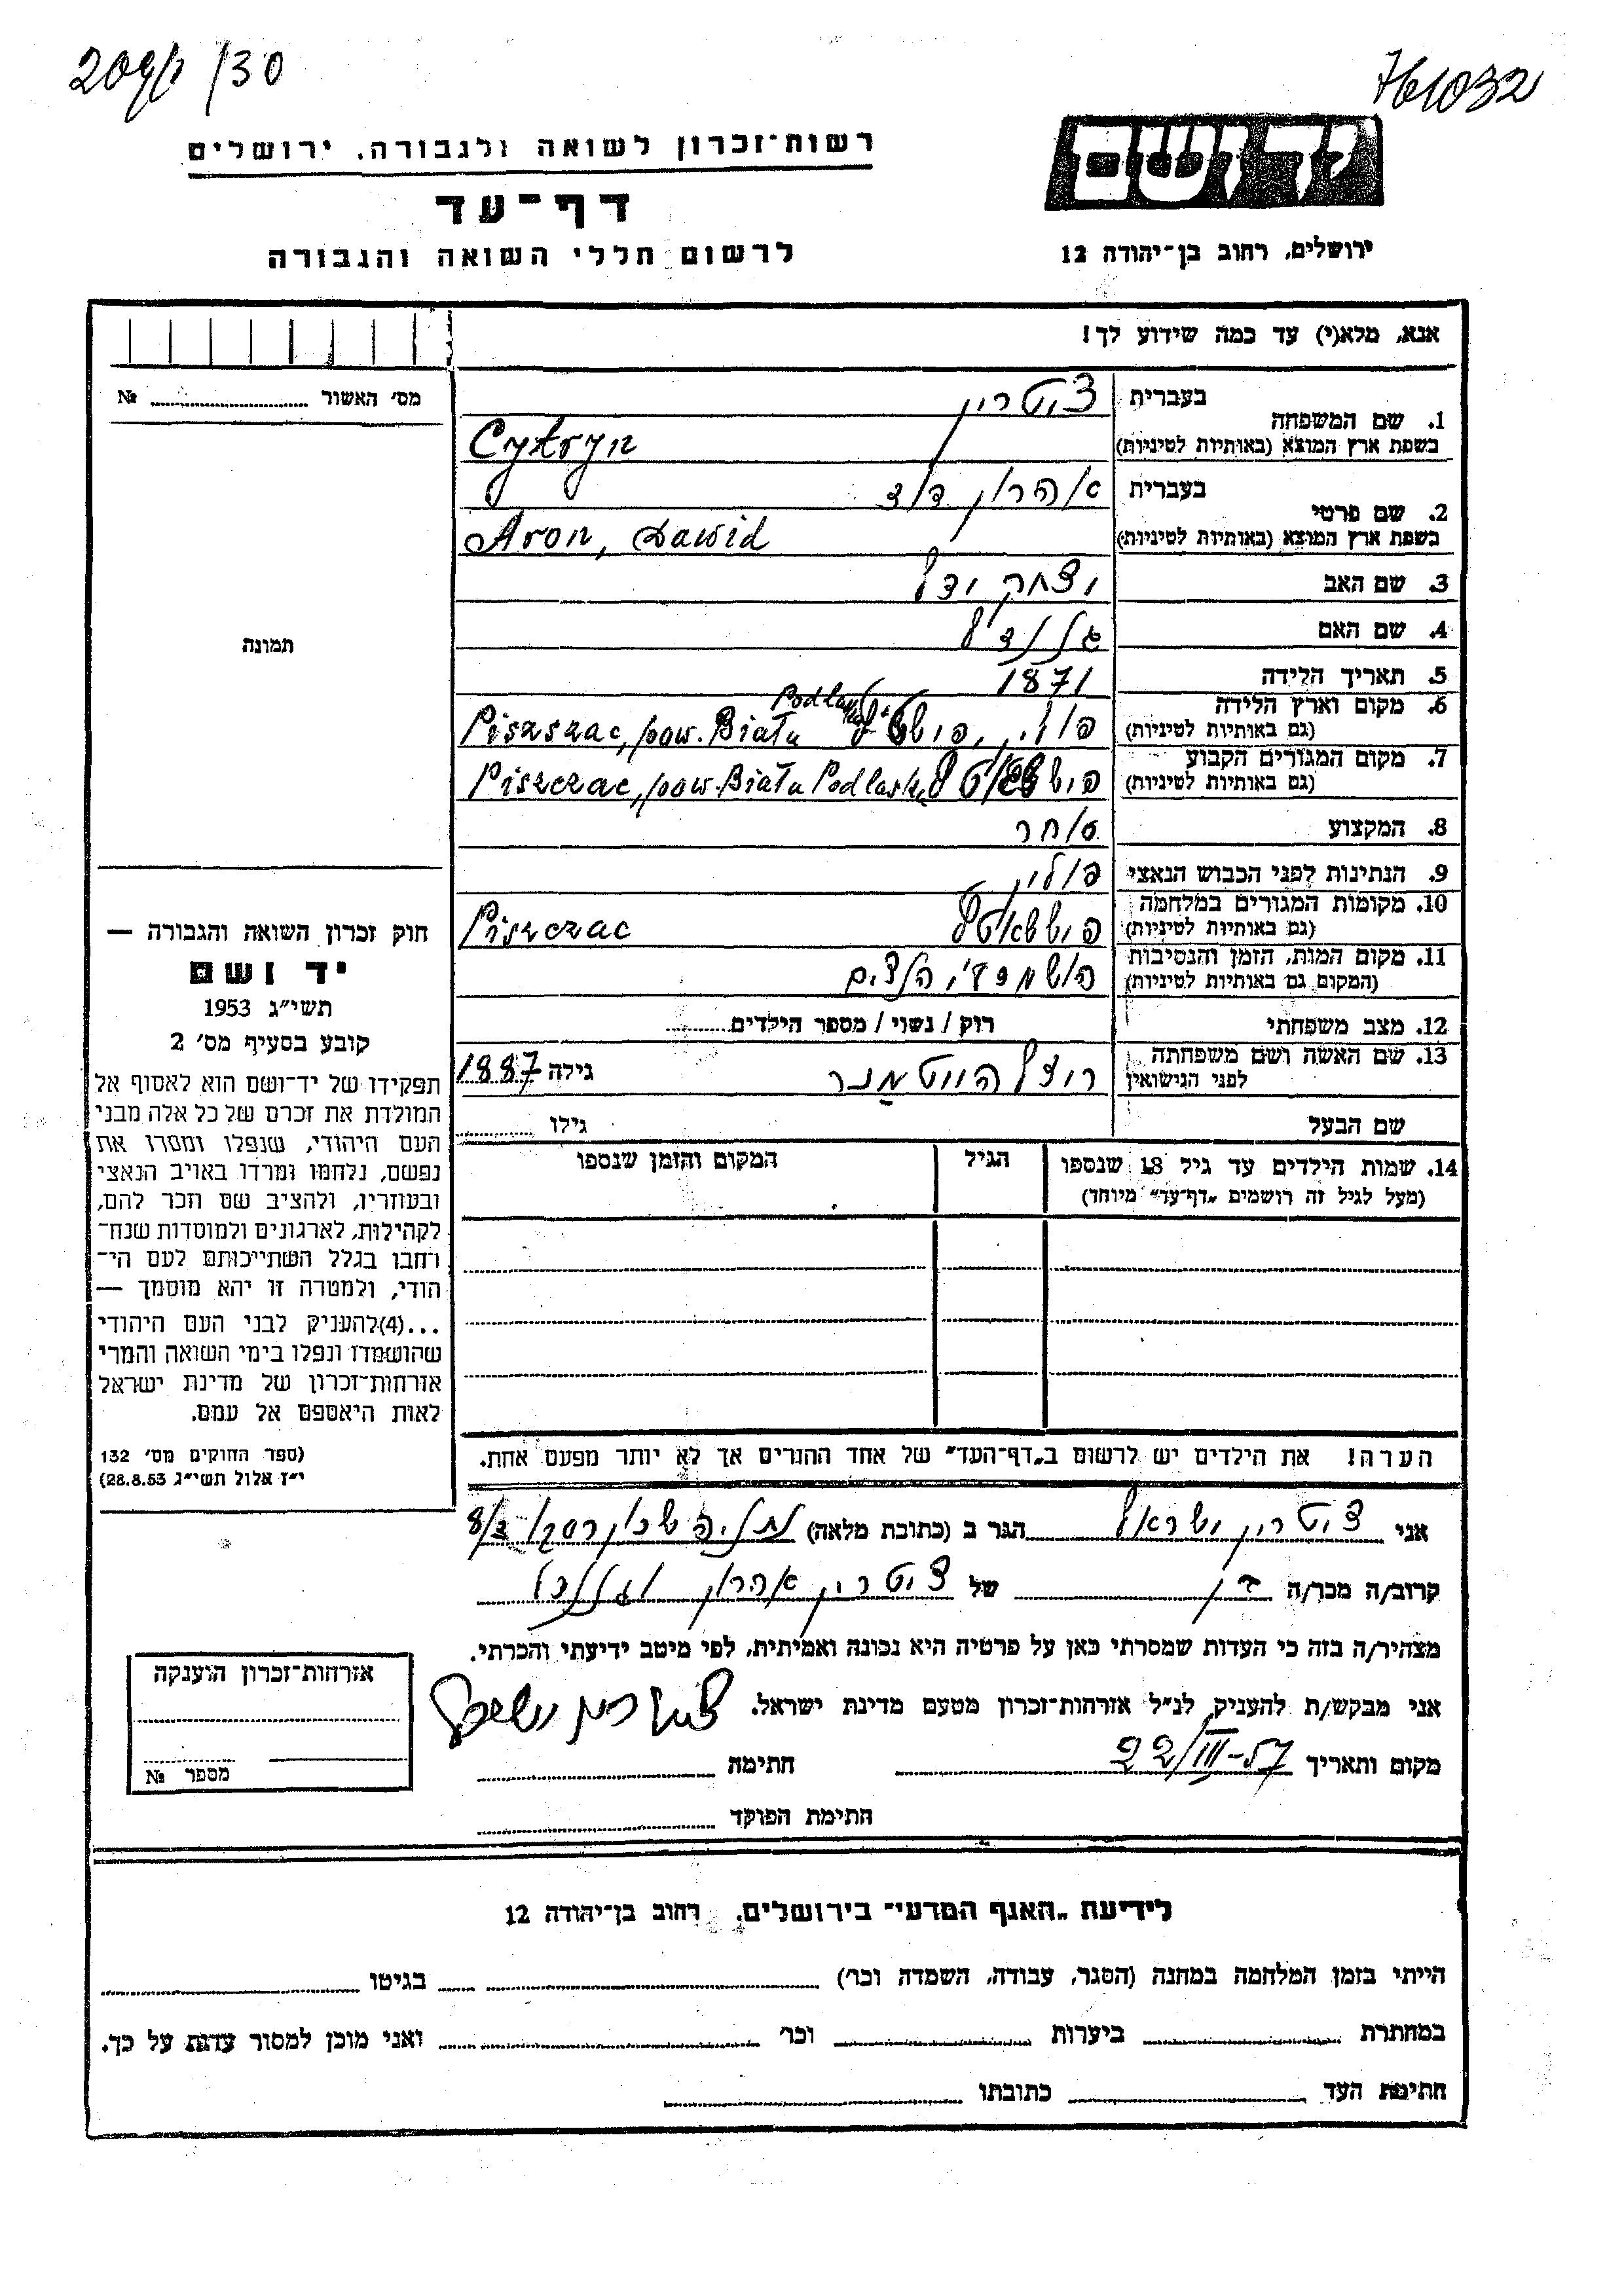 209/ /30
761032
יד ושם
רשות־זכרון לשואה ולגבורה, ירושלים
דף־עד
לרשום חללי השואה והגבורה
ירושלים, רחוב בן־יהודה 12
אנא, מלא(י) עד כמה שידוע לך!
מס׳ האשור № 
1. שם המשפחה בעברית ציטרין
בשפת ארץ המוצא (באותיות לטיניות) Cytryn
2. שם פרטי בעברית אהרון דוד
בשפת ארץ המוצא (באותיות לטיניות) Aron, Dawid
3. שם האב יצחק
4. שם האם
5. תאריך הלידה 1871
6. מקום וארץ הלידה (גם באותיות לטיניות) פולין, Piszszac, pow. Biała Podlaska
7. מקום המגורים הקבוע (גם באותיות לטיניות) Piszczac, pow. Biała Podlaska
8. המקצוע סוחר
9. הנתינות לפני הכבוש הנאצי פולין
10. מקומות המגורים במלחמה (גם באותיות לטיניות) Piszczac
11. מקום המות, הזמן והנסיבות (המקום גם באותיות לטיניות)
12. מצב משפחתי רוק / נשוי / מספר הילדים
13. שם האשה ושם משפחתה לפני הנישואין רוצל גילה 1887
שם הבעל גילו
14. שמות הילדים עד גיל 18 שנספו הגיל המקום והזמן שנספו
(מעל לגיל זה רושמים „דף־עד״ מיוחד)
הערה! את הילדים יש לרשום ב„דף־העד״ של אחד ההורים אך לא יותר מפעם אחת.
תמונה
חוק זכרון השואה והגבורה —
יד ושם
תשי״ג 1953
קובע בסעיף מס׳ 2
תפקידו של יד־ושם הוא לאסוף אל
המולדת את זכרם של כל אלה מבני
העם היהודי, שנפלו ומסרו את
נפשם, נלחמו ומרדו באויב הנאצי
ובעוזריו, ולהציב שם וזכר להם,
לקהילות, לארגונים ולמוסדות שנח־
רחבו בגלל השתייכותם לעם הי־
הודי, ולמטרה זו יהא מוסמך —
...(4)להעניק לבני העם היהודי
שהושמדו ונפלו בימי השואה והמרי
אזרחות־זכרון של מדינת ישראל
לאות היאספם אל עמם.
(ספר החוקים מס׳ 132
י״ז אלול תשי״ג 28.8.53)
אני ציטרין ישראל הגר ב (כתובת מלאה)
קרוב/ה מכר/ה בן של ציטרין אהרון
מצהיר/ה בזה כי העדות שמסרתי כאן על פרטיה היא נכונה ואמיתית, לפי מיטב ידיעתי והכרתי.
אני מבקש/ת להעניק לנ״ל אזרחות־זכרון מטעם מדינת ישראל. ציטרין ישראל
מקום ותאריך 22/III-57 חתימה
חתימת הפוקד
אזרחות־זכרון הוענקה
מספר №
לידיעת „האגף המדעי״ בירושלים, רחוב בן־יהודה 12
הייתי בזמן המלחמה במחנה (הסגר, עבודה, השמדה וכר׳) בגיטו
במחתרת ביערות וכר׳ ואני מוכן למסור עדות על כך.
חתימת העד כתובתו